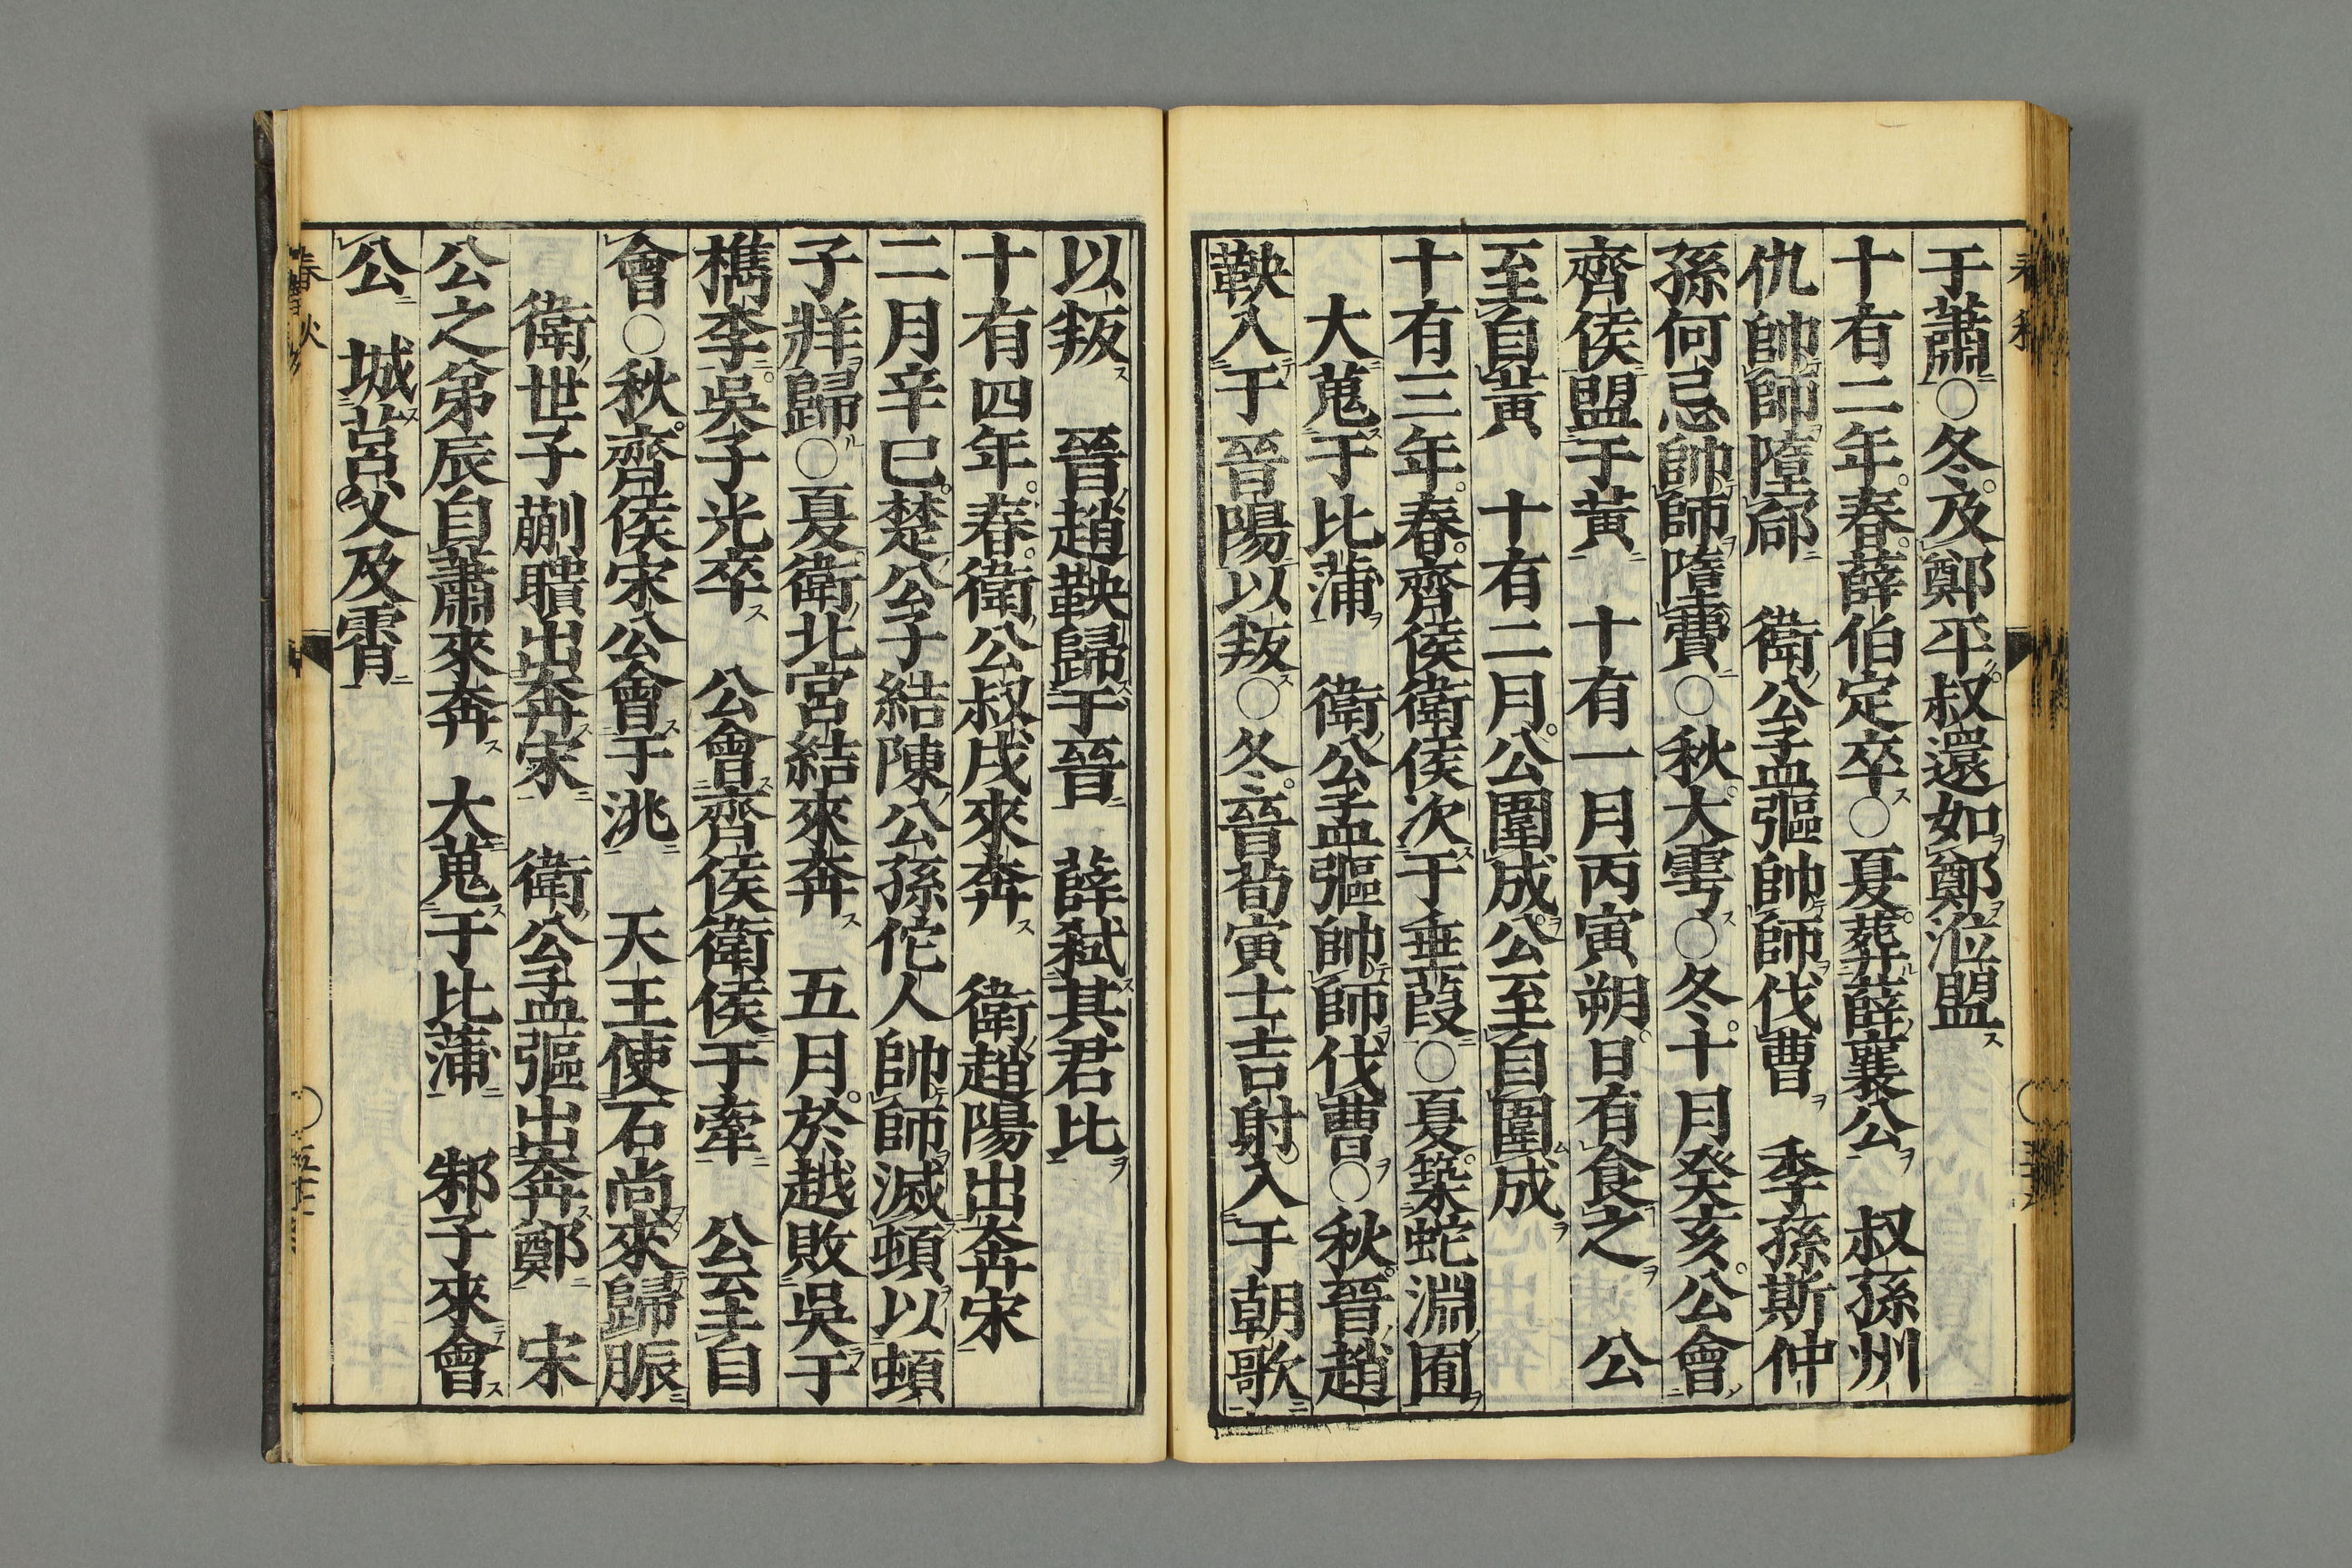 于蕭○冬及鄭平叔還如鄭涖盟
十有二年春薛伯定卒○夏葬薛襄公　叔孫州
仇帥師墮郈　衛公孟彄帥師伐曹　季孫斯仲
孫何忌帥師隳費○秋大雩○冬十月癸亥公會
齊侯盟于黃　十有一月丙寅朔日有食之　公
至自黃　十有二月公圍成公至自圍成
十有三年春齊侯衛侯次于垂葭○夏築蛇淵囿
大蒐于比蒲　衛公孟彄帥師伐曹○秋晉趙
鞅入于晉陽以叛○冬晉荀寅士吉射入于朝歌
以叛　晉趙鞅歸于晉　薛弑其君比
十有四年春衛公叔戌來奔　衛趙陽出奔宋
二月辛巳楚公子結陳公孫佗人帥師滅頓以頓
子牂歸○夏衛北宮結來奔　五月於越敗吳于
檇李吳子光卒　公會齊侯衛侯于牽　公至自
會○秋齊侯宋公會于洮　天王使石尚來歸脤
衛世子蒯聵出奔宋　衛公孟彄出奔鄭　宋
公之弟辰自蕭來奔　大蒐于比蒲　邾子來會
公　城莒父及霄
春秋